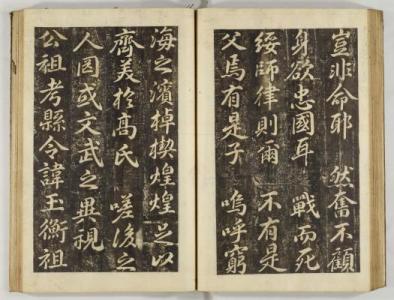 豈非命耶 然奮不顧
身欲忠國耳 戰而死
綏師律則爾 不有是
父焉有是子 嗚呼窮
海之濱棹楔煌煌足以
齊美於髙氏 嗟後之
人罔或文武之異視
公祖考縣令諱玉衡祖